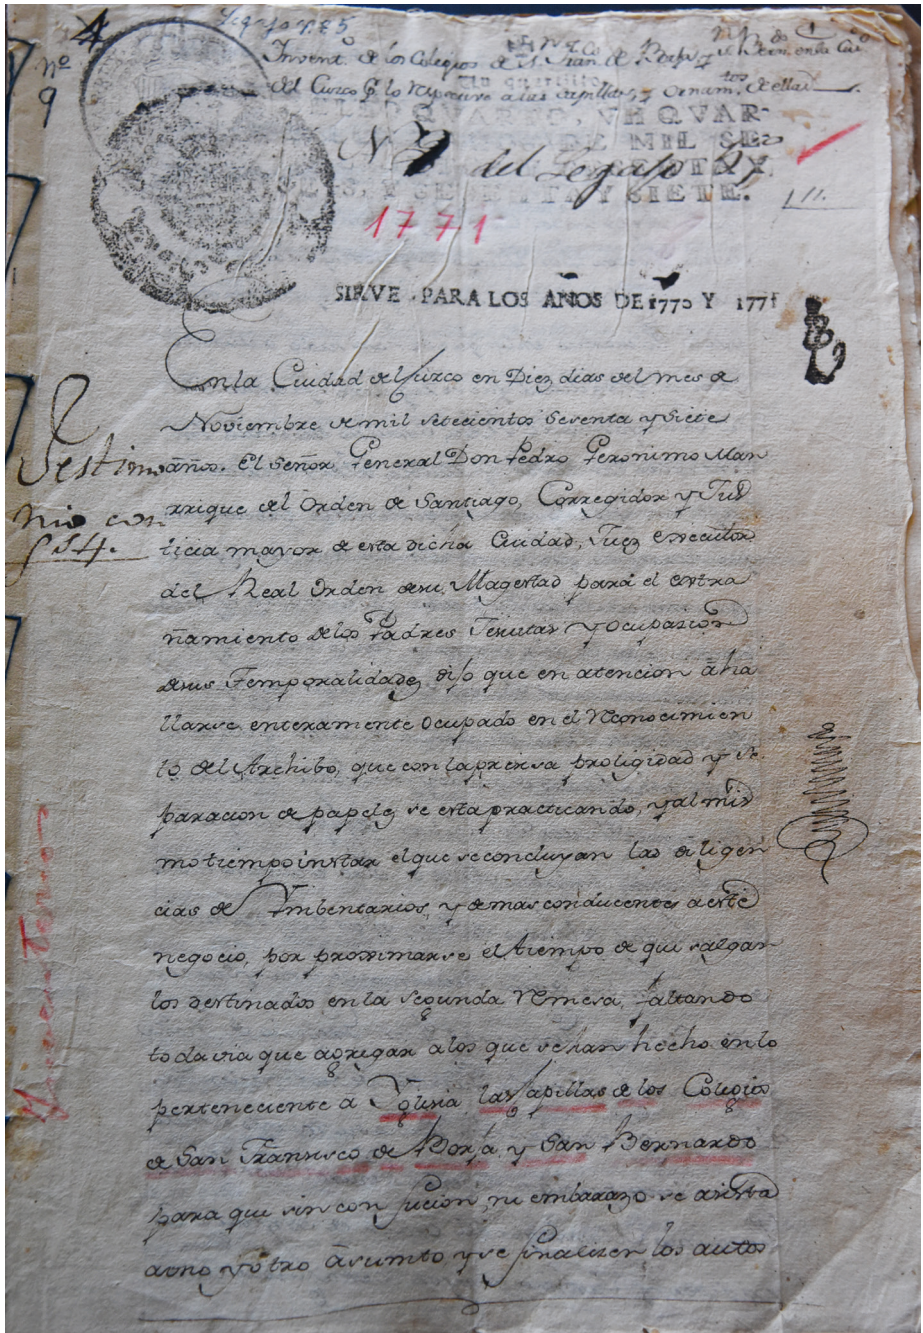 4
Nº
9
Invent. de los Colegios de S. Fran. de Borja, y
del Cuzco
Un quartillo
SELLO QVARTO, VN QVAR-
DE MIL SE-
Y SESENTA Y SIETE.
Nº del Legajo 27
1771
SIRVE PARA LOS AÑOS DE 1770 Y 1771
Testimo
nio con
f 54.
Ynventarios
En la Ciudad del Cuzco en Diez dias del mes de
Noviembre de mil setecientos Sesenta y Siete
años. El Señor General Don Pedro Geronimo Man
rrique del Orden de Santiago, Corregidor y Jus
ticia mayor de esta dicha Ciudad, Juez executor
del Real Orden de su Magestad para el extra
ñamiento de los Padres Jesuitas y Ocupacion
de sus Temporalidades dijo que en atencion á ha
llarse enteramente Ocupado en el Reconocimien
to del Archibo, que con la presisa proligidad y se
paracion de papeles se esta practicando, y al mis
mo tiempo instar el que se concluyan las diligen
cias de Ymbentarios, y demas conducentes a este
negocio, por proximarse el tiempo de que salgan
los destinados en la segunda Remesa, faltando
todavia que agregar a los que se han hecho en lo
perteneciente a Yglesia las Capillas de los Colegios
de San Francisco de Borja, y San Bernardo
para que sin confucion, ni embarazo se asista
a uno y otro asumto y se finalizen los autos